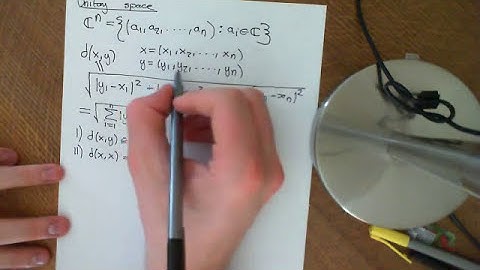 Unitary space
ℂⁿ = {(a₁, a₂, ....., aₙ) : aᵢ ∈ ℂ}
d(x,y) x = (x₁, x₂, ...., xₙ)
= y = (y₁, y₂, ....., yₙ)
√|y₁-x₁|² + -xₙ|²
= √∑ᵢ₌₁ⁿ |y
I) d(x,y) ∈
II) d(x,x) =